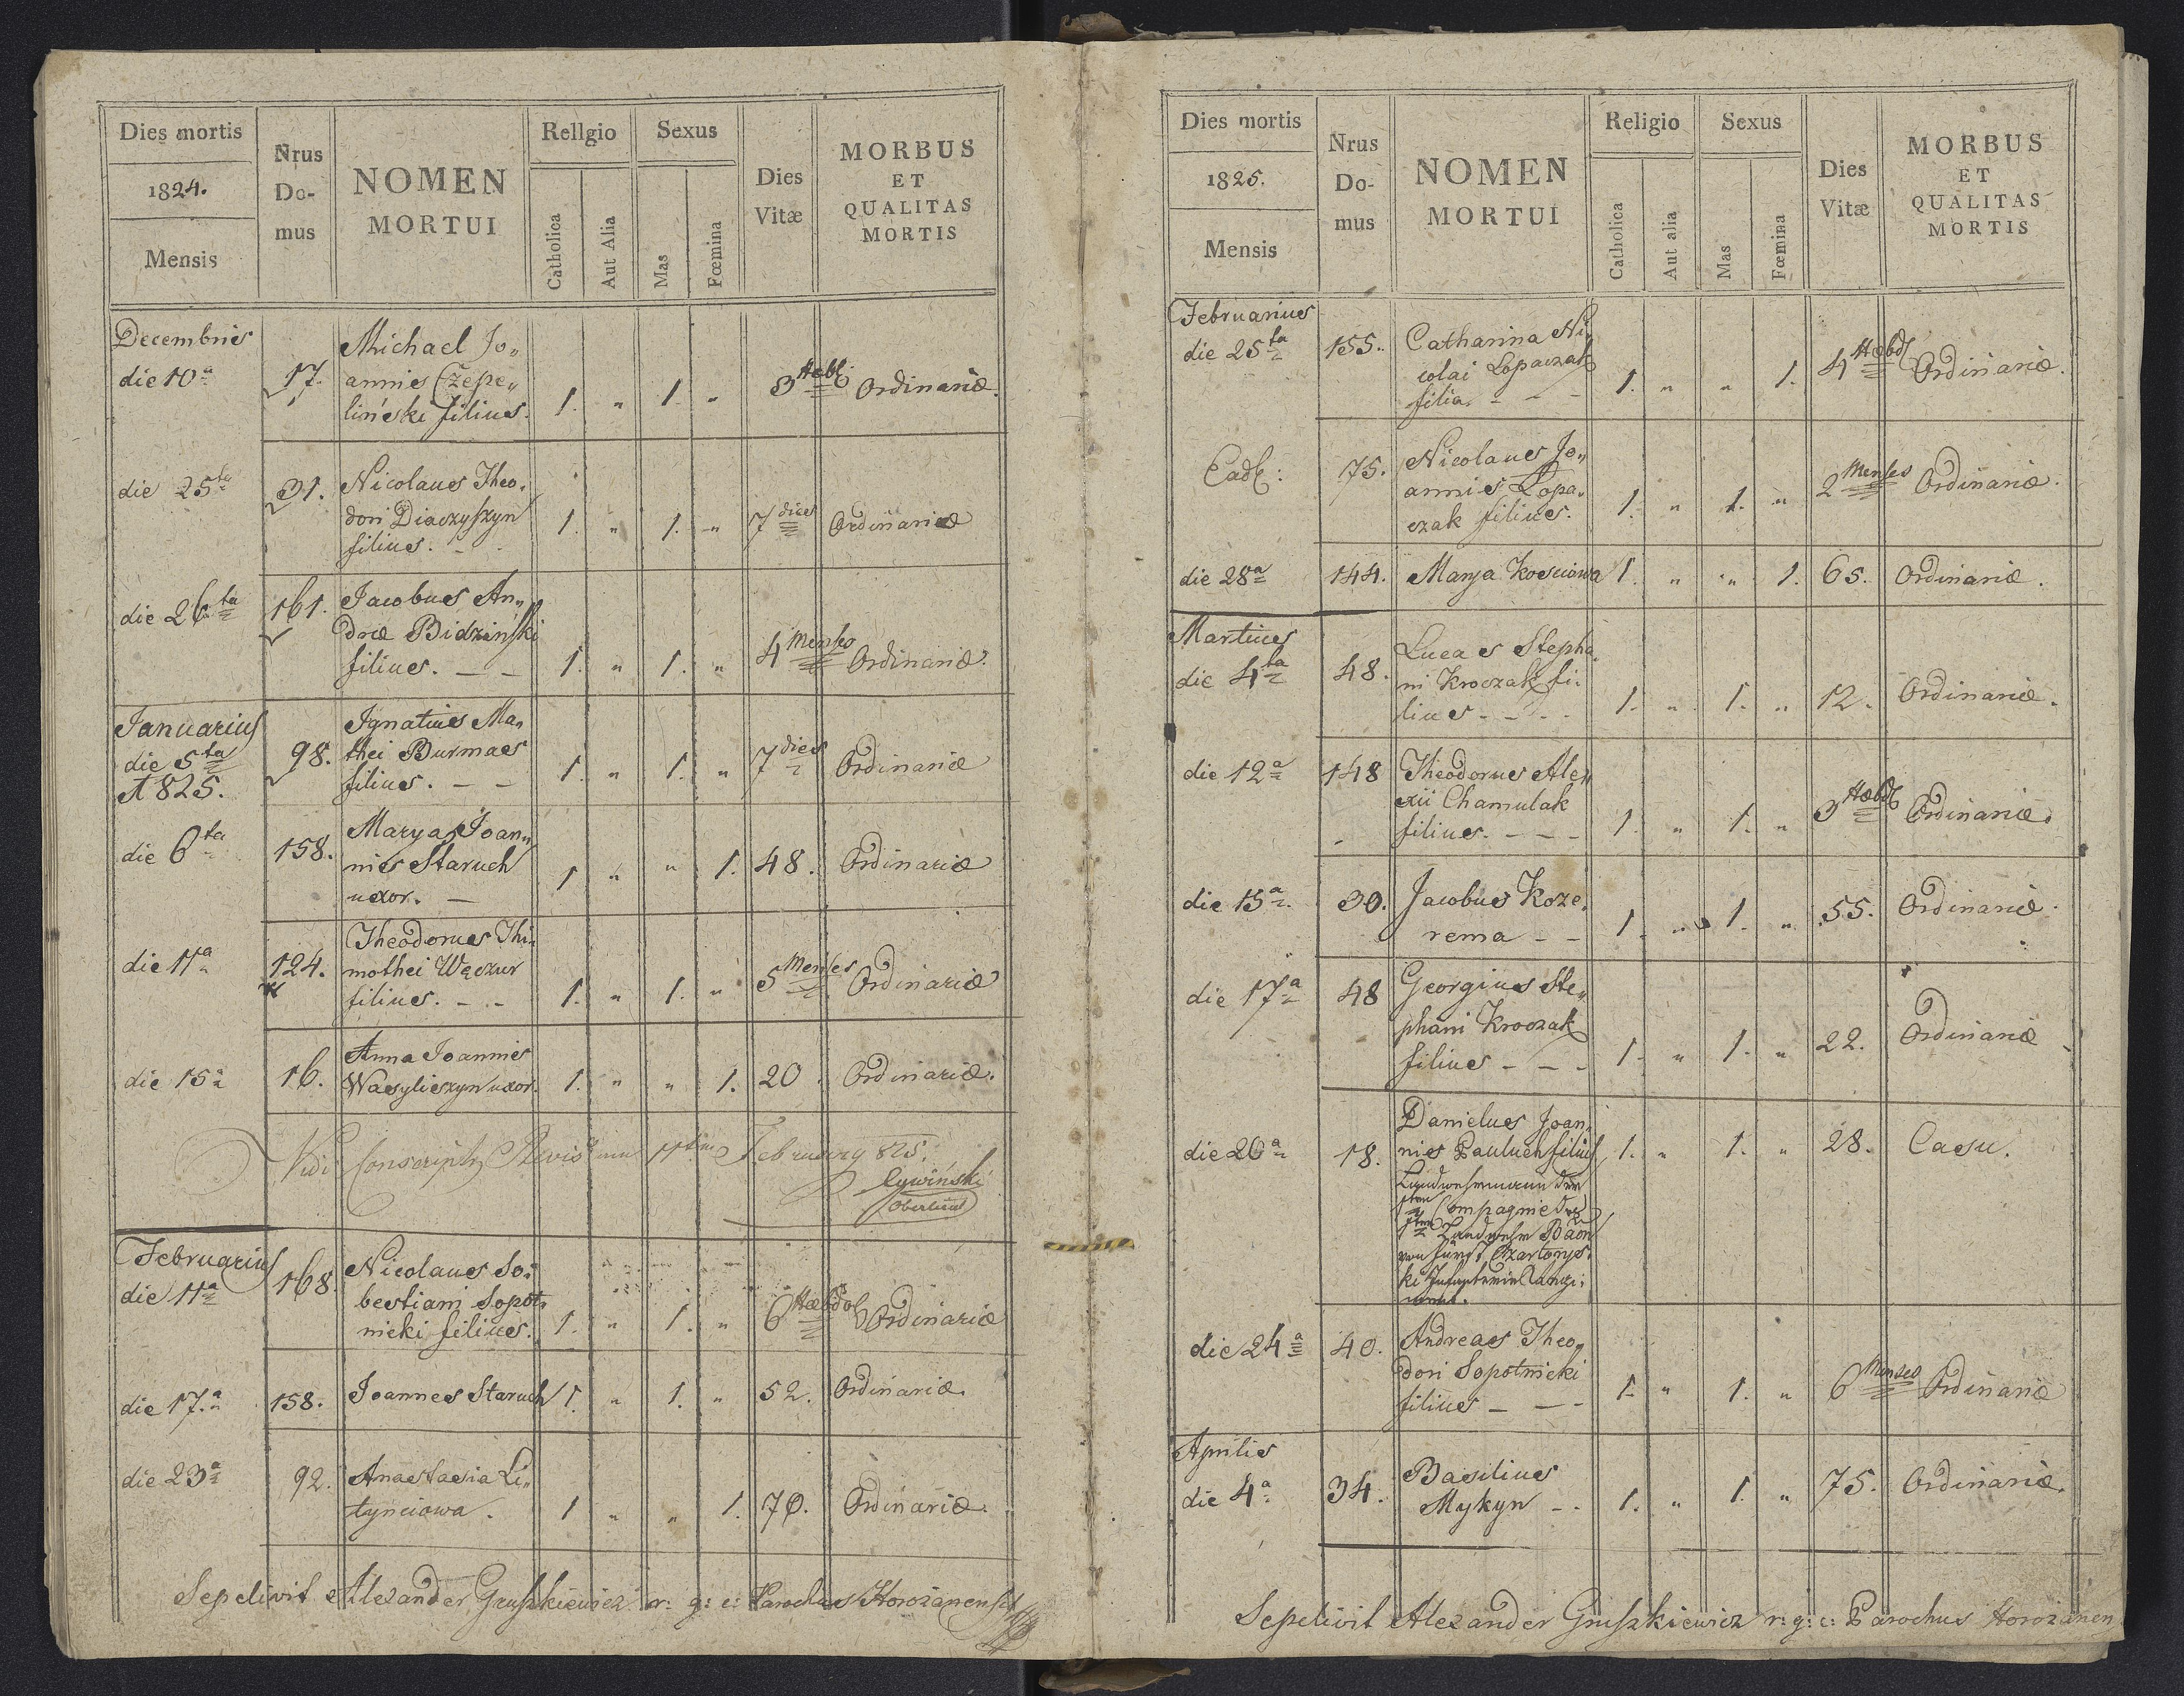 Dies mortis
1824.
Mensis
Nrus
Do-
mus
NOMEN
MORTUI
Religio
Catholica
Aut Alia
Sexus
Mas
Fœmina
Dies
Vitæ
MORBUS
ET
QUALITAS
MORTIS
Decembris
die 10a 17. Michael Jo„
annis Czepe„
liński filius. 1. „ 1. „ 3 Hebd: Ordinariæ.
die 25ta 31. Nicolaus Theo,
dori Diaczyszyn 1. „ 1. „ 7 dies Ordinariæ
filius. -
die 26ta 161. Jacobus An„
dreæ Bidziński
filius. — — 1. „ 1. „ 4 Menses Ordinariæ.
Januarius
die 5ta
A 825. 98. Ignatius Ma,
thei Burmas
filius. — — 1. „ 1. „ 7 dies Ordinariæ
die 6ta 158. Marya Joan„
nis Staruch
uxor. — 1 „ „ 1. 48. Ordinariæ
die 11a 124. Theodorus Thi„
mothei Węczur
filius. - - 1. „ 1. „ 5 Menses Ordinariæ
die 15a 16. Anna Joannis
Wasyliszyn uxor. 1. „ „ 1. 20. Ordinariæ.
Vidi 11 February 825.
Cywiński
Februarius
die 11a 168 Nicolaus Se„
bestiani Sopot„
nicki filius. 1. „ 1. „ 6 Hæbdo Ordinariæ
die 17.a 158. Joannes Staruch 1. „ 1. „ 52. Ordinariæ.
die 23a 92. Anastasia Li„
tynciowa. 1 „ „ 1. 70. Ordinariæ.
Sepelivit Alexander Gruszkiewicz r: g: c: Parochus Horozanensis
Dies mortis
1825.
Mensis
Nrus
Do-
mus
NOMEN
MORTUI
Religio
Catholica
Aut alia
Sexus
Mas
Fœmina
Dies
Vitæ
MORBUS
ET
QUALITAS
MORTIS
Februarius
die 25ta 155. Catharina Ni„
colai Lopaczak
filia. - - - 1. „ „ 1. 4 Hæbd Ordinariæ.
Ead: 75. Nicolaus Jo„
annis Lopa,
czak filius. 1. „ 1. „ 2 Menses Ordinariæ.
die 28a 144. Marya Kosciowa 1. „ „ 1. 65. Ordinariæ.
Martius
die 4ta 48. Lucas Stepha„
ni Kroczak fi:
lius - - - 1. „ 1. „ 12. Ordinariæ.
die 12a 148 Theodorus Ale„
xii Chamulak
filius. - - - 1. „ 1. „ 3 Hæbd Ordinariæ.
die 15a 30. Jacobus Koze„
rema - - 1. „ 1. „ 55. Ordinariæ.
die 17a 48 Georgius Ste„
phani Kroczak
filius - - - 1. „ 1. „ 22. Ordinariæ
die 20a 18. Danielus Joan„
nis Pauluch filius, 1. „ 1. „ 28. Casu.
Landwehrmann der
1ten Compagnie des
1ten Landwehr Baon
von Fürst Czartorys„
ki Infanterie Regi„
ment.
die 24a 40. Andreas Theo„
dori Sopotnicki
filius - - - 1. „ 1. „ 6 Menses Ordinariæ
Aprilis
die 4a 34. Basilius
Mykyn - - 1. „ 1. „ 75. Ordinariæ.
Sepelivit Alexander Gruszkiewicz r: g: c: Parochus Horozanen